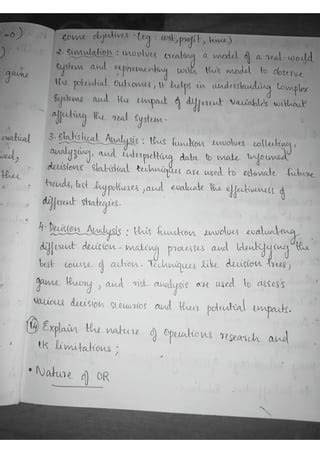 =0)
some objectives (eg: cost, profit, time)
2. Simulation: involves creating a model of a real-world
game
system and experimenting with this model to observe
the potential outcomes, It helps in understanding complex
systems and the impact of different variables without
affecting the real system.
3. Statistical Analysis: this function involves collecting,
analyzing, and interpretting data to make informed
decisions statistical techniques are used to estimate future
trends, test hypotheses, and evaluate the effectiveness of
different strategies.
4. Decision Analysis: this function involves evaluating
different decision-making processes and identifying the
best course of action. Techniques like decision trees,
game theory, and risk analysis are used to assess
various decision scenarios and their potential impacts.
14 Explain the nature of Operations research and
its limitations;
• Nature of OR